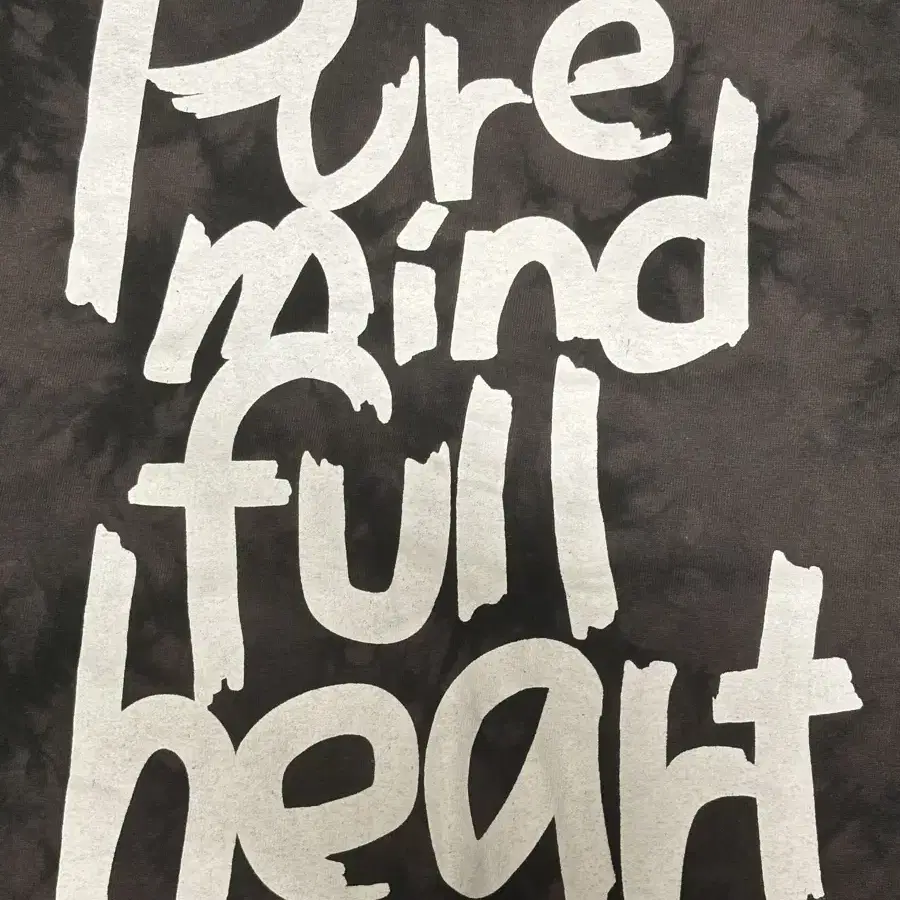 Pure
mind
full
heart